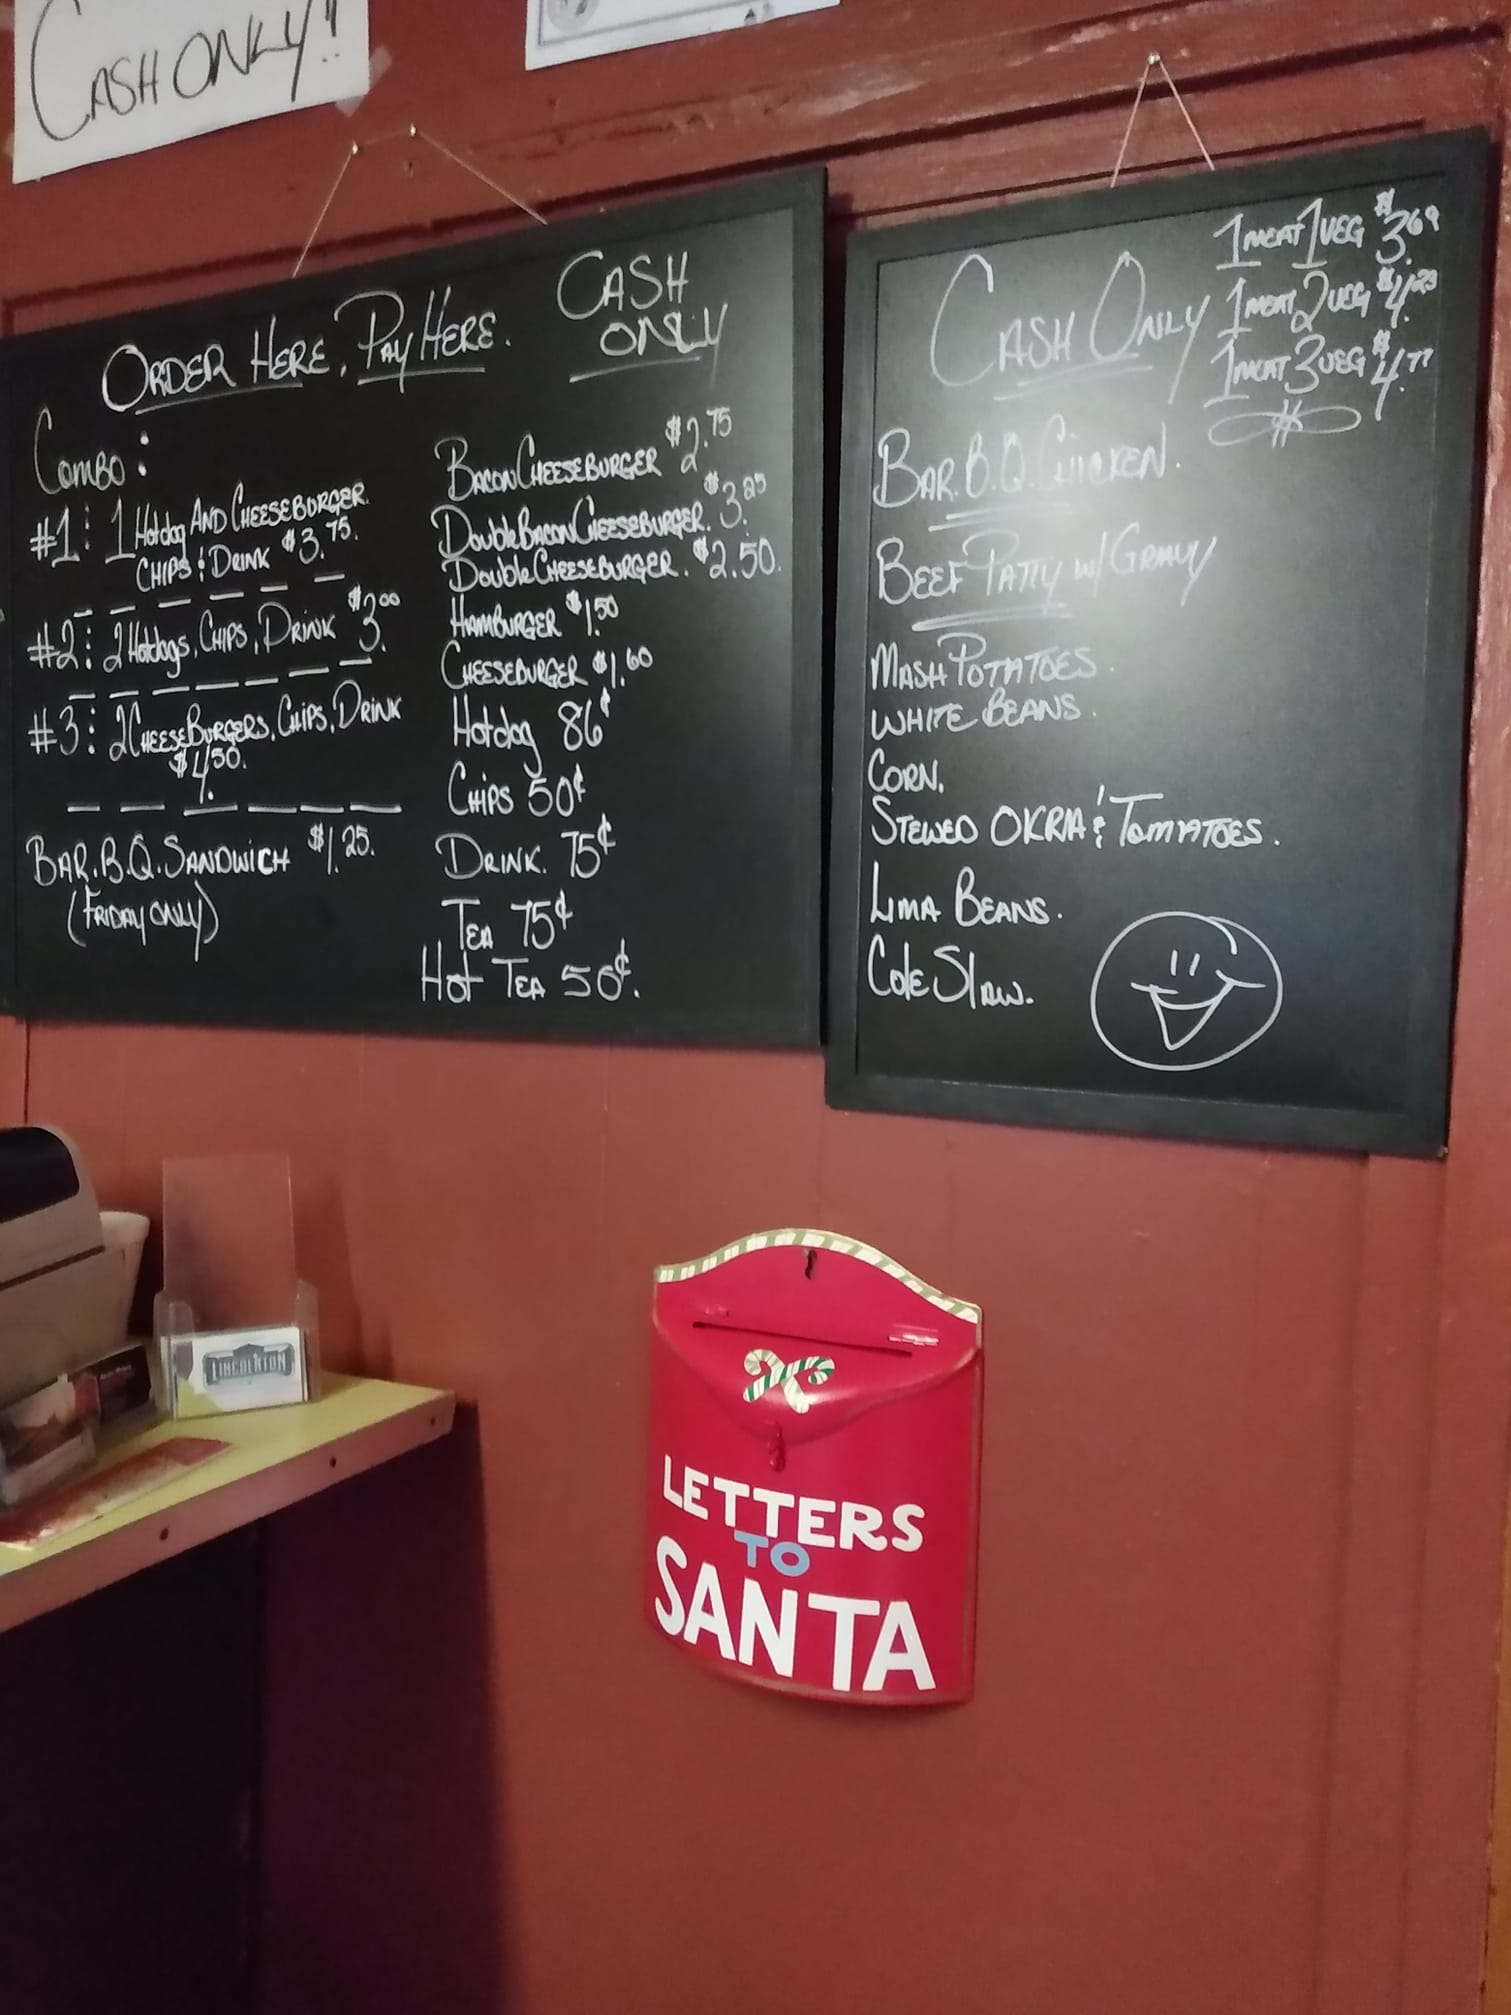 CASH ONLY!!
ORDER HERE. PAY HERE.
CASH
ONLY
COMBO:
#1: 1 Hotdog AND CHEESEBURGER.
CHIPS & DRINK $3.75.
#2: 2 Hotdogs, CHIPS, DRINK $3.00
#3: 2 CHEESEBURGERS, CHIPS, DRINK
$4.50.
BAR.B.Q. SANDWICH $1.25.
(FRIDAY ONLY)
BACON CHEESEBURGER $2.75
DOUBLE BACON CHEESEBURGER. $3.25
DOUBLE CHEESEBURGER. $2.50.
HAMBURGER $1.50
CHEESEBURGER $1.60
Hotdog 86¢
CHIPS 50¢
DRINK. 75¢
TEA 75¢
Hot TEA 50¢.
CASH ONLY
1 MEAT 1 VEG $3.69
1 MEAT 2 VEG $4.23
1 MEAT 3 VEG $4.77
BAR.B.Q. CHICKEN.
BEEF PATTY w/ GRAVY
MASH POTATOES.
WHITE BEANS.
CORN.
STEWED OKRA & TOMATOES.
LIMA BEANS.
Cole Slaw.
LINCOLNTON
LETTERS
TO
SANTA